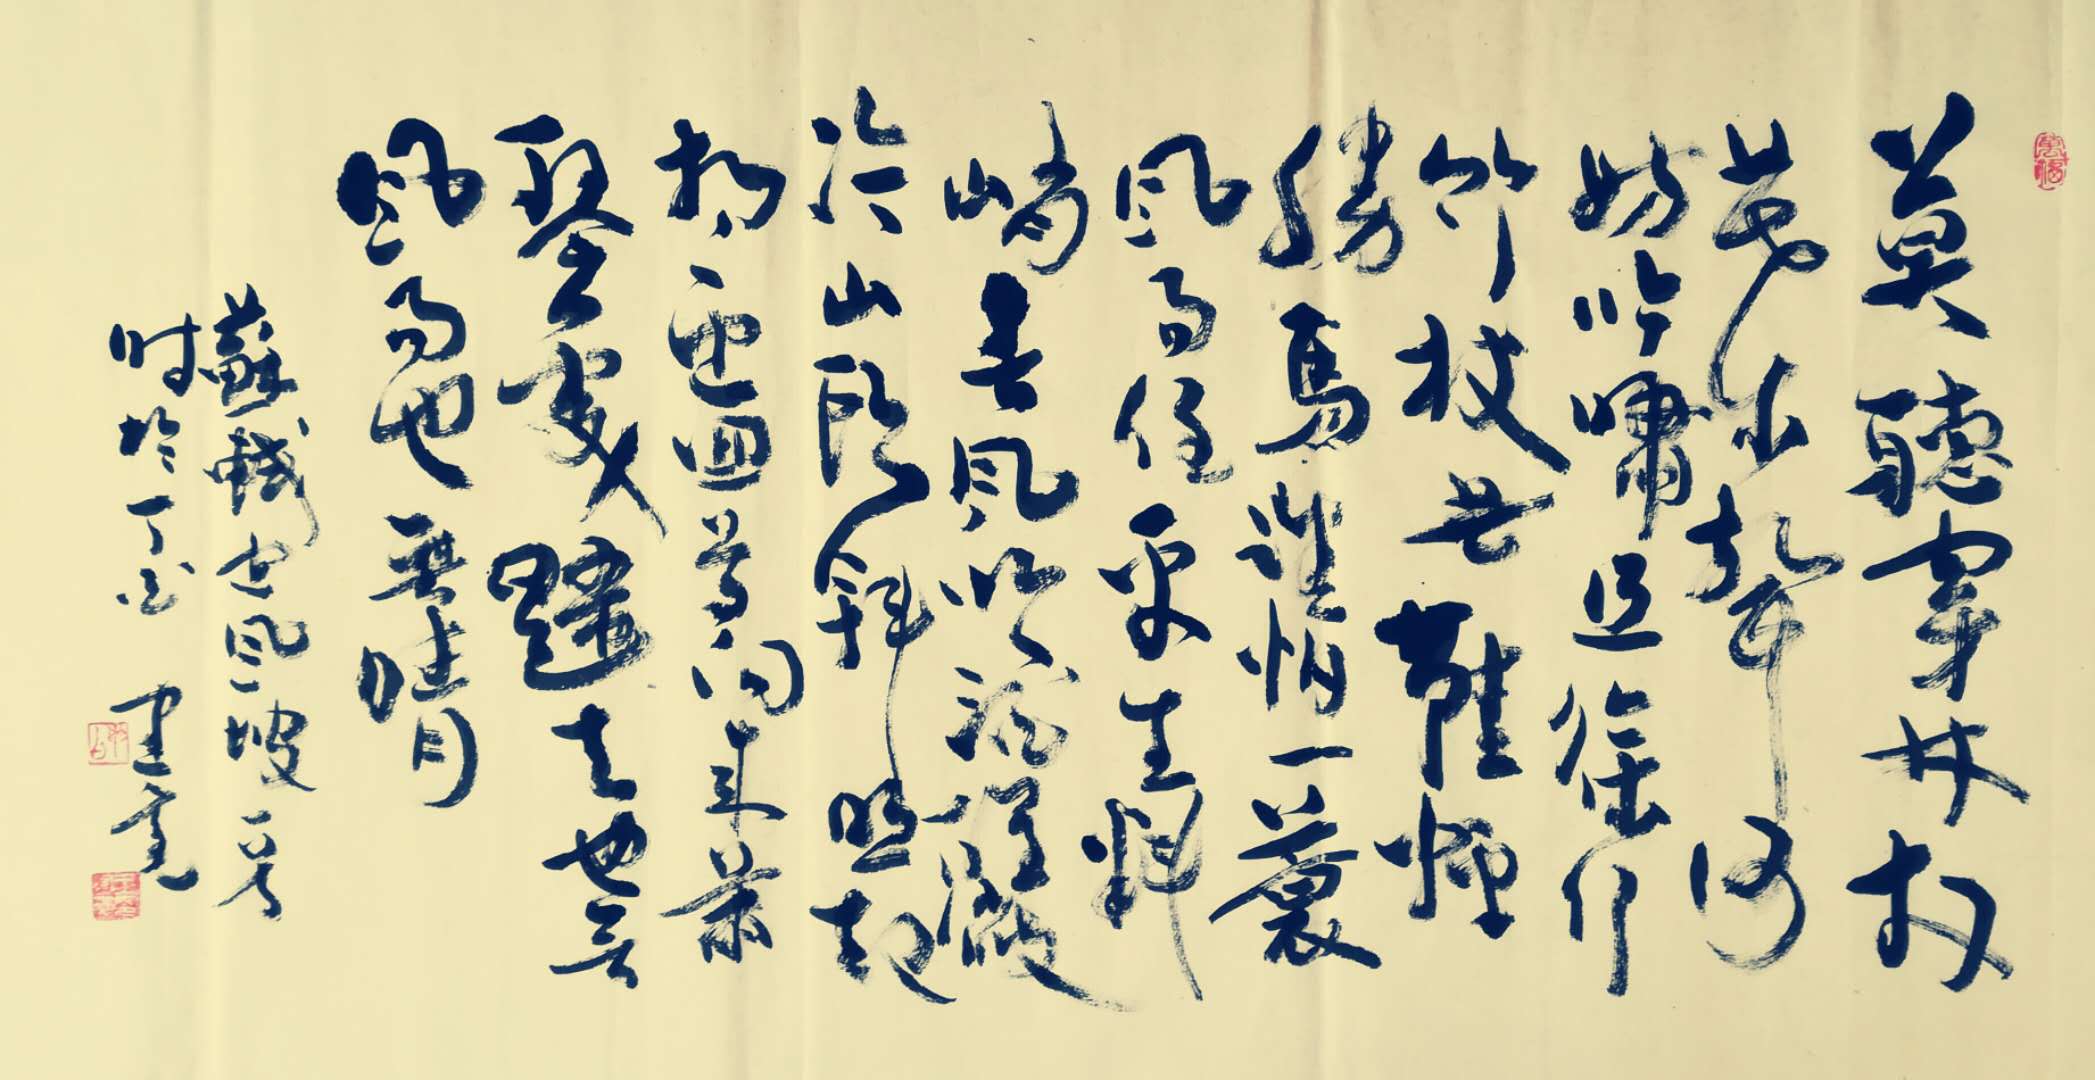 莫聽穿林打
葉聲何
妨吟嘯且徐行
竹杖芒鞋輕
勝馬誰怕一蓑
風雨任平生料
峭春風吹酒醒微
冷山頭斜照却
相迎回首向來蕭
瑟處歸去也無
風雨也無晴
蘇軾定風波一首
時於丁酉